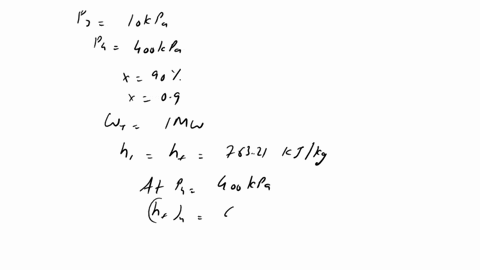 P3 = 10 kPa
P4 = 400 kPa
x = 90 %
x = 0.9
WT = 1 MW
h1 = hf = 763.21 kJ/kg
At P4 = 400 kPa
(hf)4 = 6